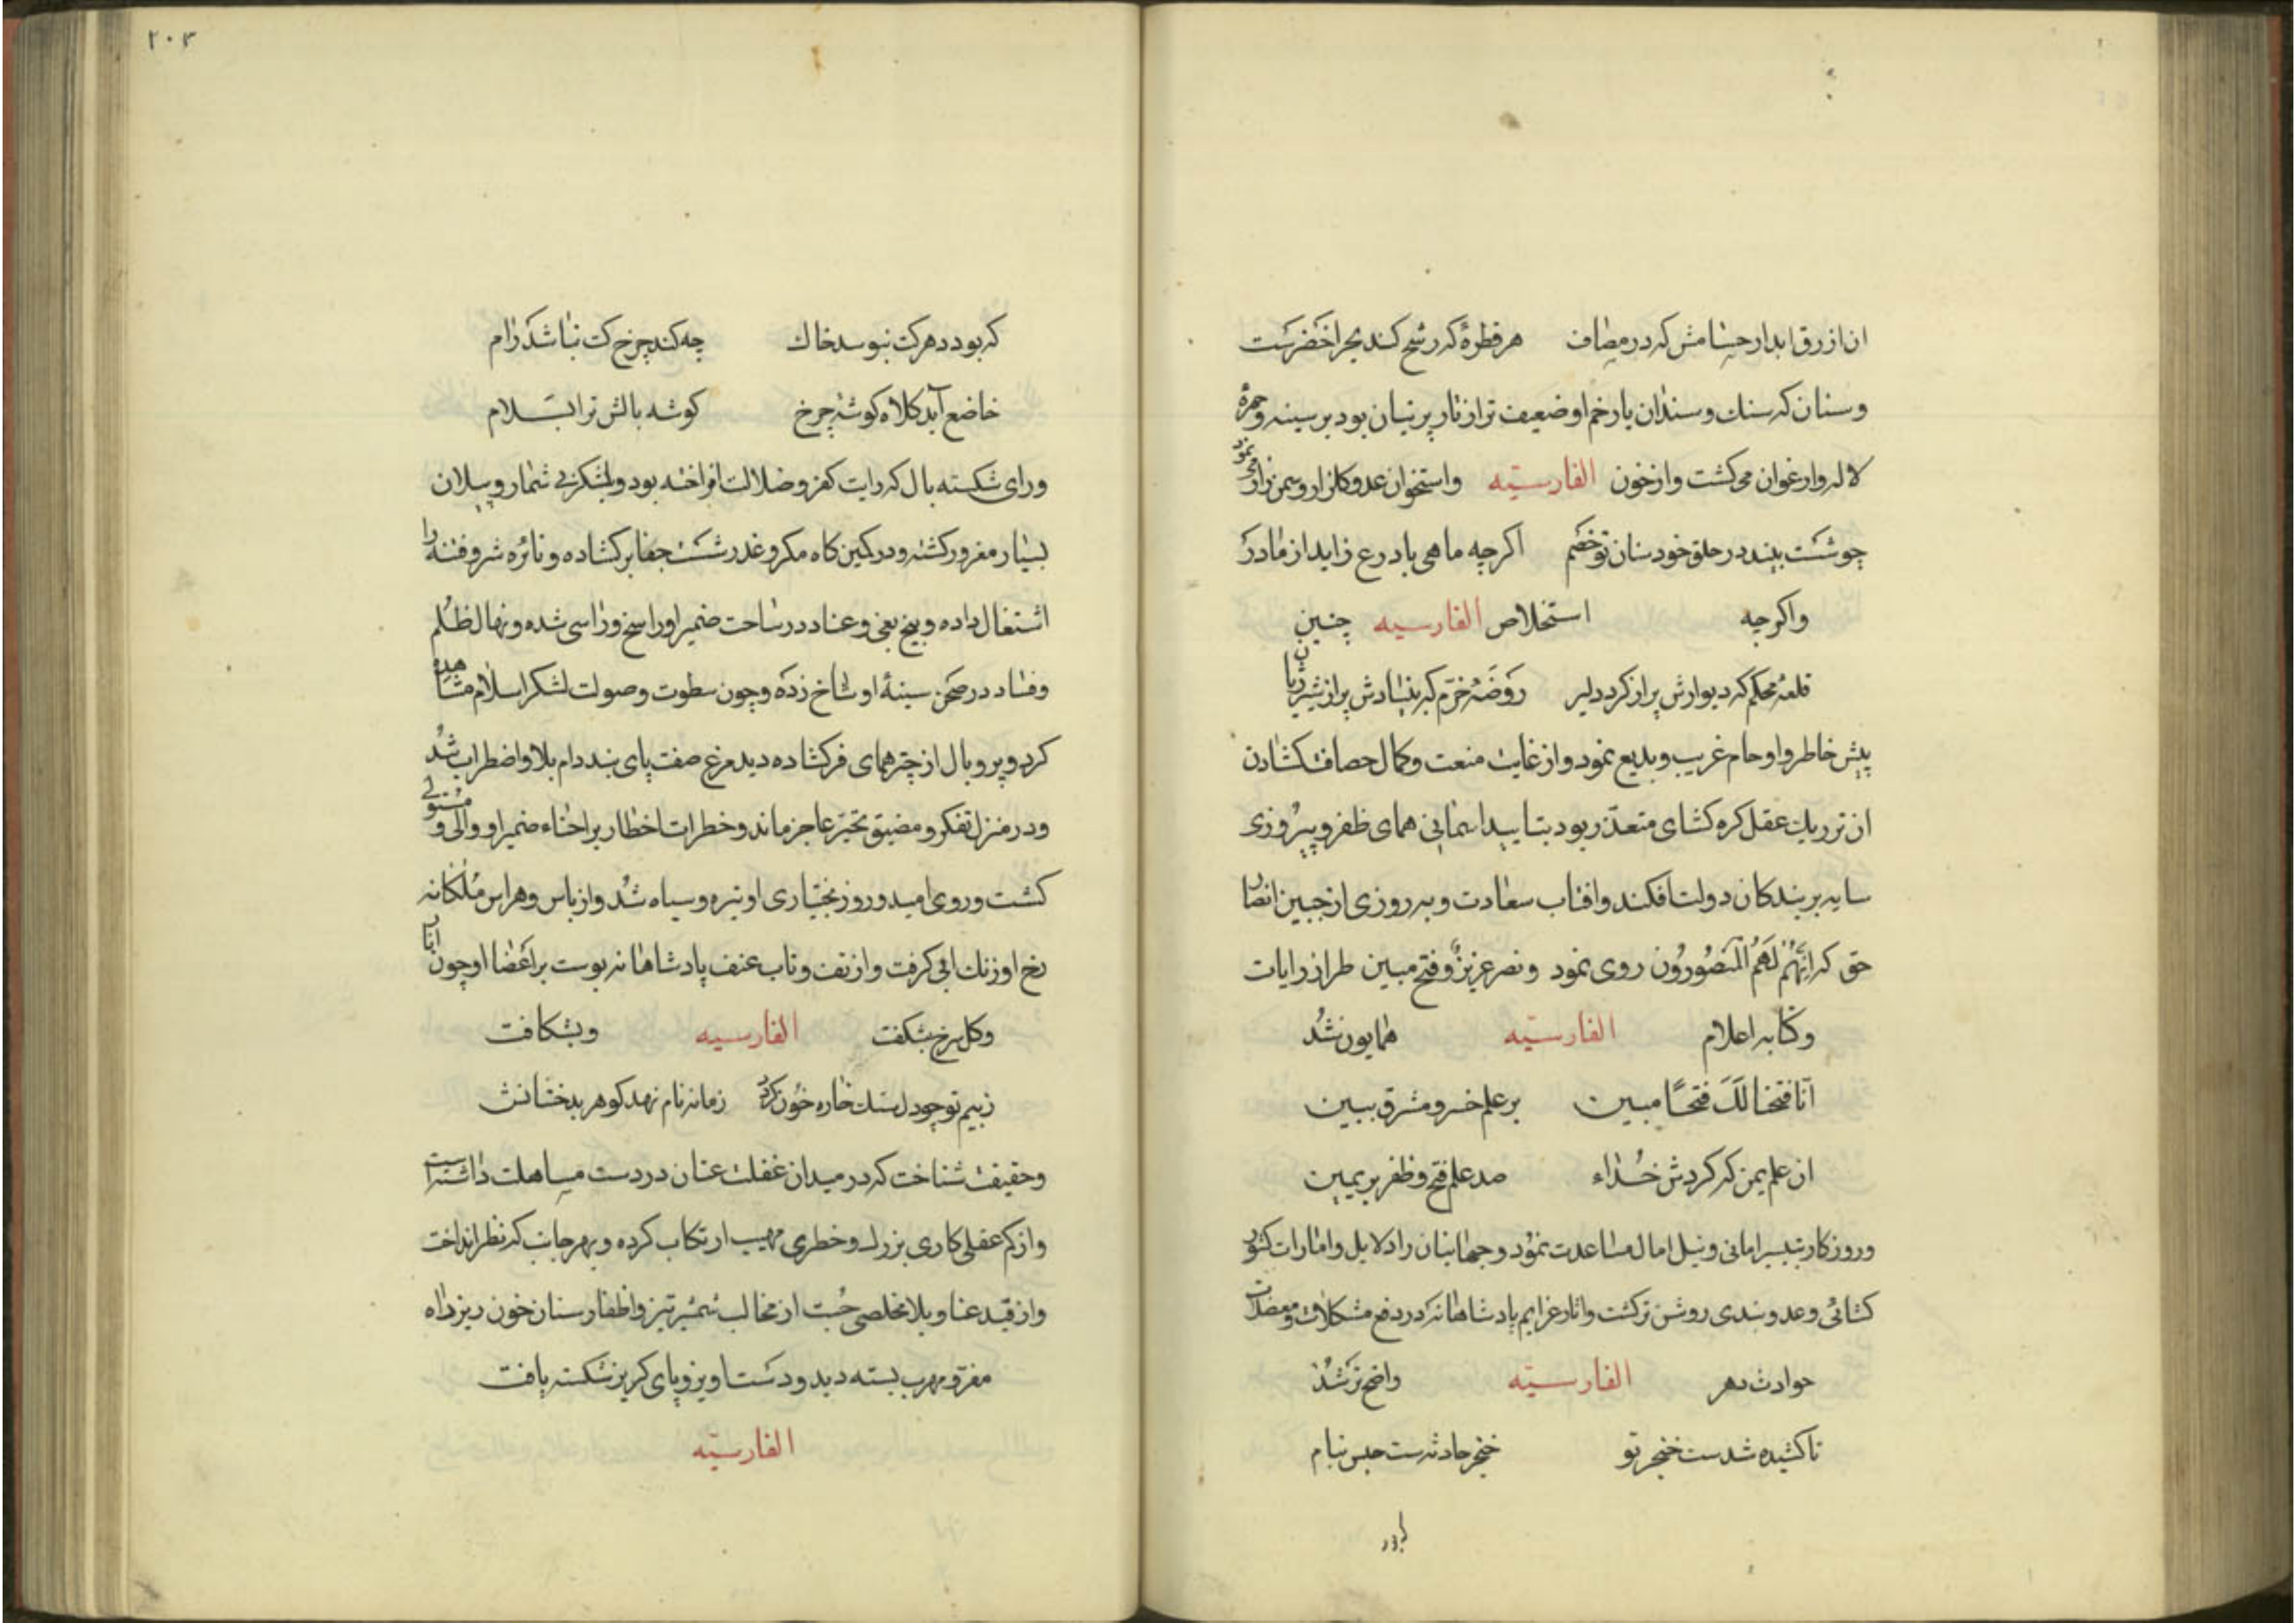 ان ازرق ابدار حسامش که در مصاف هر قطرۀ که رشح کند بحر اخضرست
و سنان که سنك و سندان با زخم او ضعیف تر از تار پرنیان بود بر سینه و چهرۀ
لاله و ارغوان می کشت و از خون الفارسیّه و استخوان عدو کلزار و سمن زار می نمود
چو شست بیند در حلق خود سنان تو خصم اکرچه ماهی با درع زاید از مادر
واکرچه استخلاص الفارسیه چنین
قلعۀ محکم که دیوارش پر از کرد دلیر روضۀ خرّم که بنیادش پر از شیر ژیان
پیش خاطر و اوحام غریب و بدیع نمود و از غایت منعت و کمال حصافت کشادن
ان نزدیك عقل کره کشای متعذّر بود بتایید اسمانی همای ظفر و پیروزی
سایه بر بندکان دولت افکند و افتاب سعادت و بهروزی از جبین انصار
حق که اِنَّهُم لَهُمُ المَنصُورُون روی نمود و نصر عزیزٌ و فتح مبین طراز رایات
و کتابه اعلام الفارسیّه همایون شُد
انّا فتحنا لَكَ فتحًا مبین بر علم خسرو مشرق ببین
ان علم یمن که کردش خُداء صد علم فتح و ظفر بر یمین
و روزکار بتیسیر امانی و نیل امال مساعدت نمُود و جهانیان را دلایل و امارات کشور
کشائی و عدو بندی روشن تر کشت و اثار عزایم پادشاهانه که در دفع مشکلات و معضلات
حوادث دهر الفارسیّه واضح تر شُد
تا کشیده شدست خنجر تو خنجر حادثه ست حبس نیام
که بود
۲۰۳
که بود دهر کت نبوسد خاك چه کند چرخ کت نباشد رام
خاضع آید کلاه کوشۀ چرخ کوشه بالش ترا بسَلام
و رای شکسته بال که رایت کفر و ضلالت افراخته بود و بلشکر بی شمار و پیلان
بسیار مغرور کشته و در کمین کاه مکر و غدر شست جفا بر کشاده و نائره شر و فتنه را
اشتغال داده و بیخ بغی و عناد در ساحت ضمیر او راسخ و راسی شده و نهال ظلم
و فساد در صحن سینۀ او شاخ زده و چون سطوت و صولت لشکر اسلام مشاهده
کرد و پر و بال از چتر همای فر کشاده دید مرغ صفت پای بند دام بلا و اضطراب شُد
و در منزل تفکر و مضیق تحیّر عاجز ماند و خطرات اخطار بر احناء ضمیر او والی و مُستولی
کشت و روی امید و روز بختیاری او تیره و سیاه شُد و از باس و هراس مُلکانه
رخ او زنك ابی کرفت و از تف و تاب عنف پادشاهانه پوست بر اعضا او چون انار
و کل سرخ بشکفت الفارسیه و بشکافت
ز بیم تو چو دل سنك خاره خُون کردد زمانه نام نهد کوهر بدخشانش
و حقیقت شناخت که در میدان غفلت عنان در دست مساهلت داشته است
و از کم عقلی کاری بزرك و خطری مهیب ارتکاب کرده و بهر جانب که نظر انداخت
و از قید عنا و بلا مخلصی جُست از مخالب شمشیر تیز و اظفار سنان خون ریز راه
مفر و مهرب بسته دید و دست اویز و پای کریز شکسته یافت
الفارسیّه